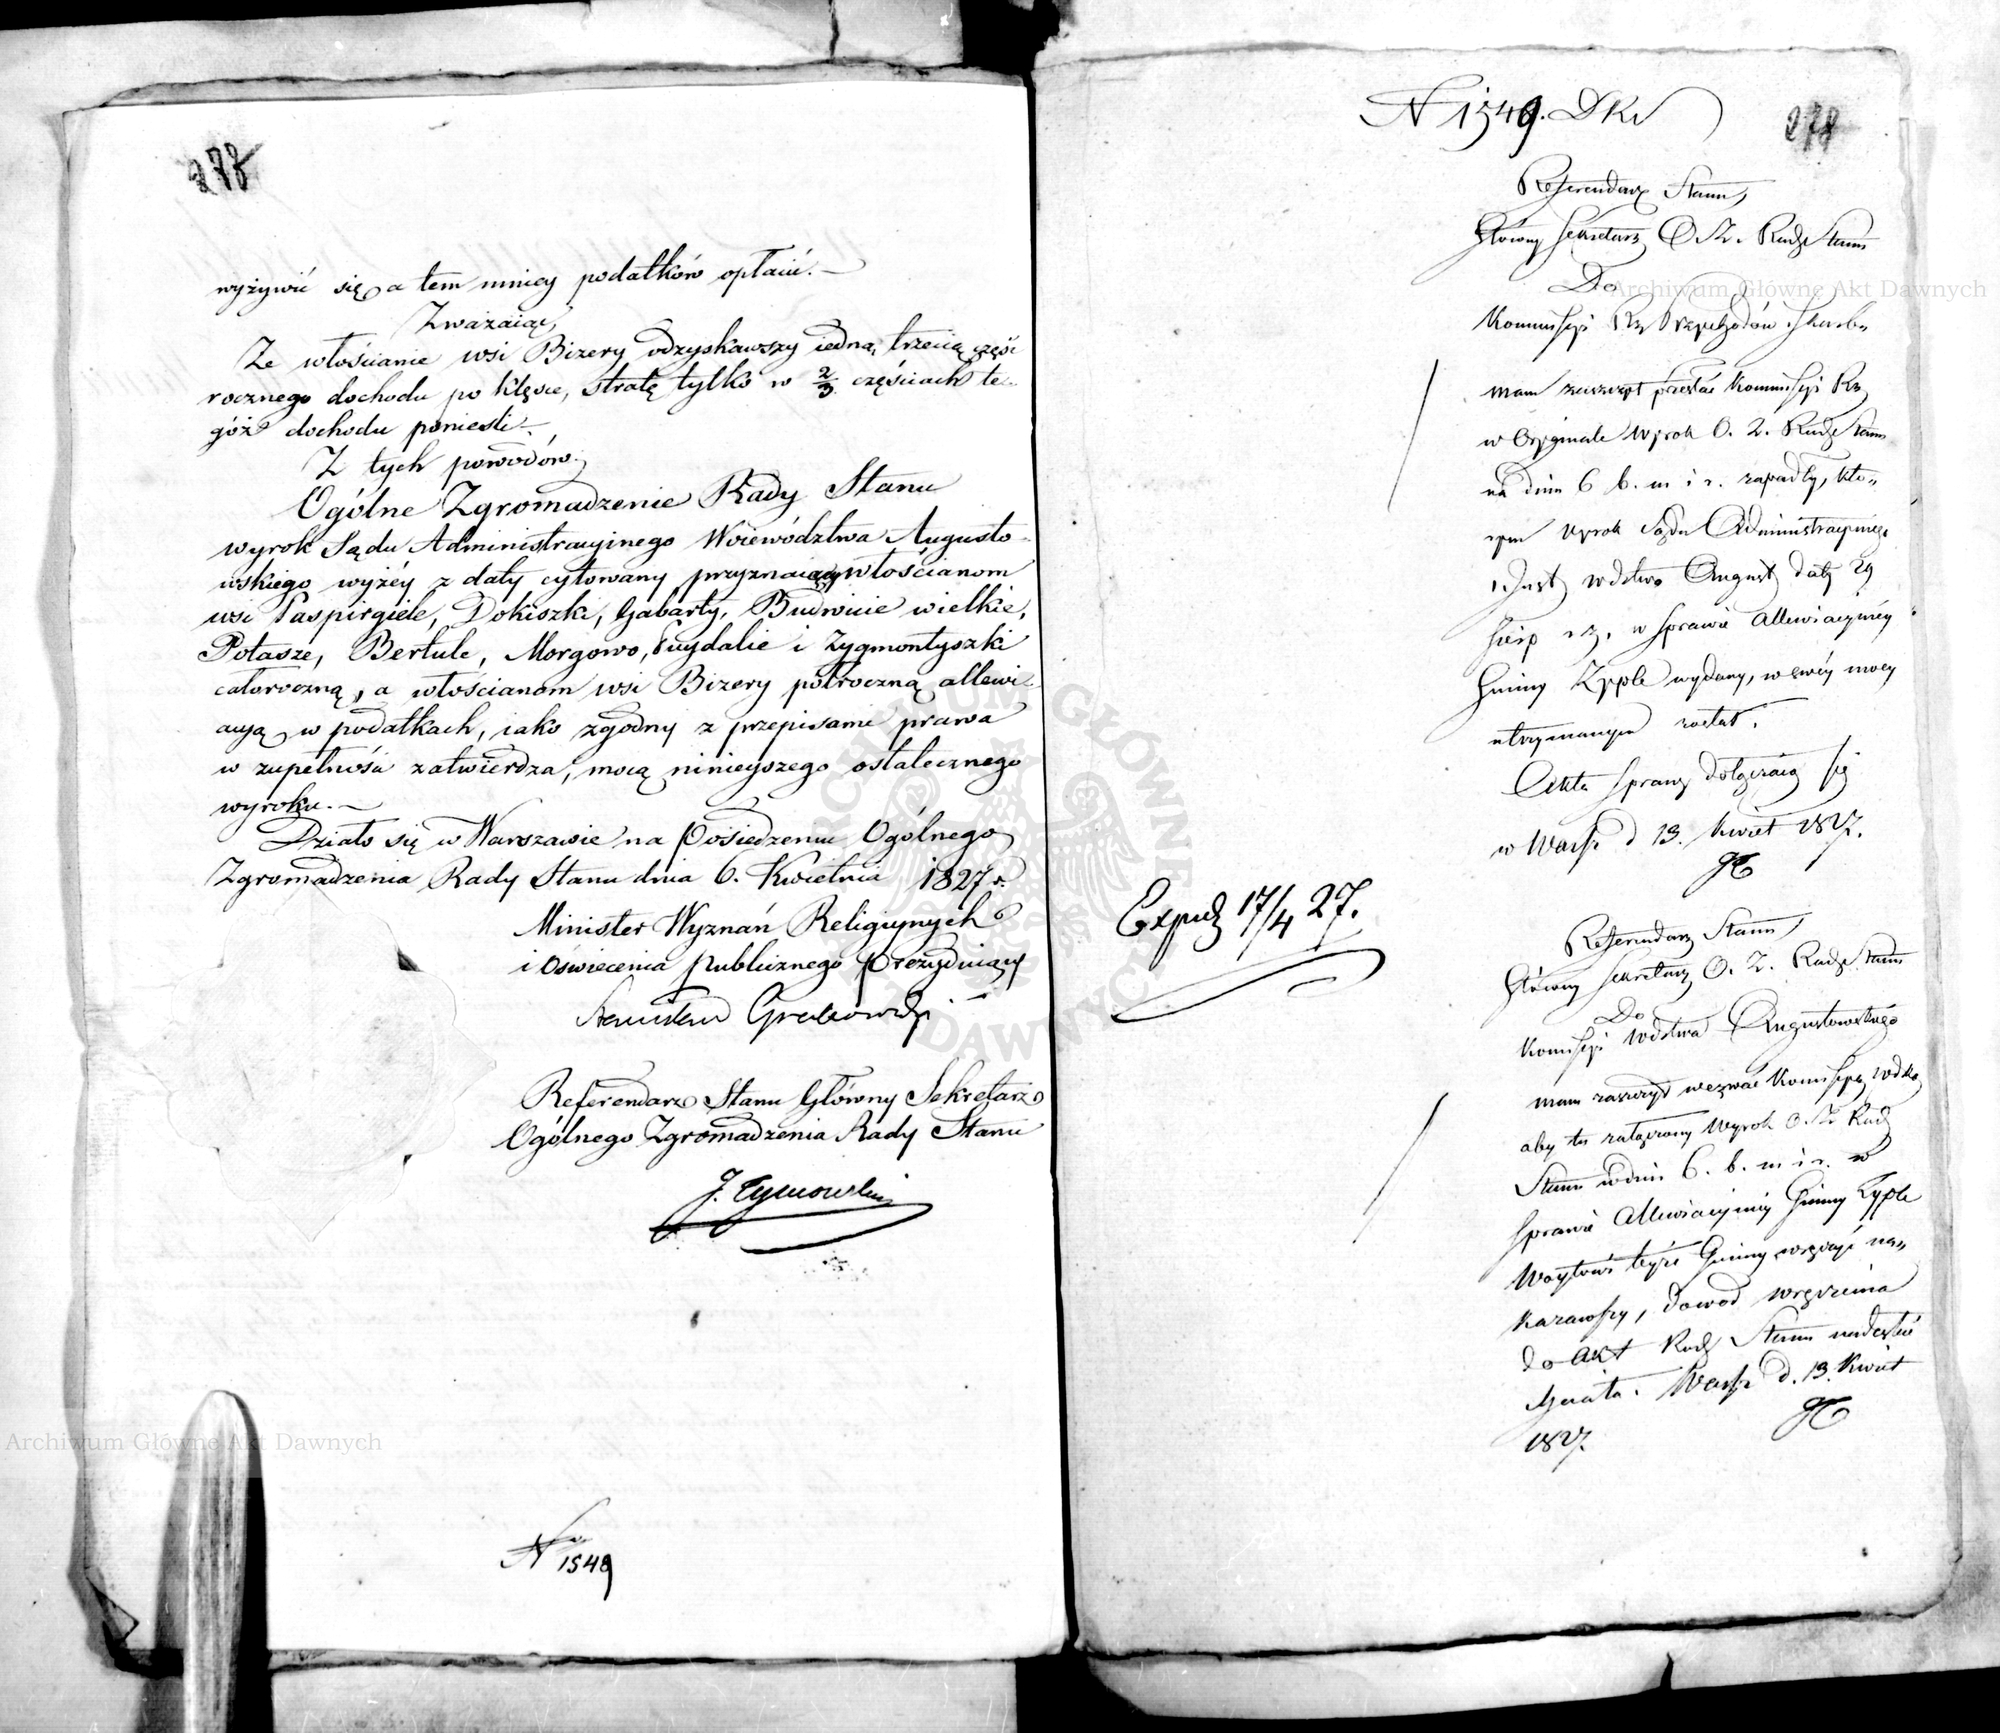 278
wyżywić się a tem mniey podatków opłacić. —
Zważaiąc,
Że włościanie wsi Bizery odzyskawszy iedną trzecią część
rocznego dochodu po klęsce, stratę tylko w 2/3 częściach te-
góż dochodu ponieśli. —
Z tych powodów.
Ogólne Zgromadzenie Rady Stanu
wyrok Sądu Administracyinego Woiewództwa Augusto-
wskiego wyżéy z daty cytowany przyznaiący włościanom
wsi Paspirgiele, Dokiszki, Gabarty, Budwicie wielkie,
Potasze, Bertule, Morgowo, Puydalie i Zygmontyszki
całoroczną, a włościanom wsi Bizery półroczną allewi-
acyą w podatkach, iako zgodny z przepisami prawa
w zupełności zatwierdza, mocą ninieyszego ostatecznego
wyroku. —
Działo się w Warszawie na Posiedzeniu Ogólnego
Zgromadzenia Rady Stanu dnia 6. Kwietnia 1827 r.
Minister Wyznań Religiynych
i Oświecenia Publicznego Prezyduiący
Stanisław Grabowski
Referendarz Stanu Główny Sekretarz
Ogólnego Zgromadzenia Rady Stanu
J. Tymowski
N 1549
N 1549. DKr
278
Referendarz Stanu,
Główny Sekretarz O. Z. Rady Stanu
Do
Kommissyi Rz Przychodów i Skarbu
mam zaszczyt przesłać Kommissyi Rz
w Oryginale Wyrok O. Z. Rady Stanu
na dniu 6 b. m i r. zapadły, któ-
rym wyrok Sądu Administracyinego
Wdztwa August daty 29
Sierp r z. w Sprawie Allewiacyiney
Gminy Kyple wydany, w swéy mocy
utrzymanym został.
Akta Sprawy dołączaią się
w Warsz d 13. Kwiet 1827.
Exped 17/4 27.
Referendarz Stanu,
Główny Sekretarz O. Z. Rady Stanu
Do
Komissyi Wdztwa Augustowskiego
mam zaszczyt wezwać Komissyą Wdzką
aby tu załączony Wyrok O. Z Rady
Stanu w dniu 6. b. m i r. w
Sprawie Allewiacyiney Gminy Kyple
Woytowi teyże Gminy wręczyć na-
kazawszy, dowód wręczenia
do Akt Rady Stanu nadesłać
Warsz d. 13. Kwiet
1827.
Archiwum Główne Akt Dawnych
Archiwum Główne Akt Dawnych
ARCHIWUM GŁÓWNE AKT DAWNYCH